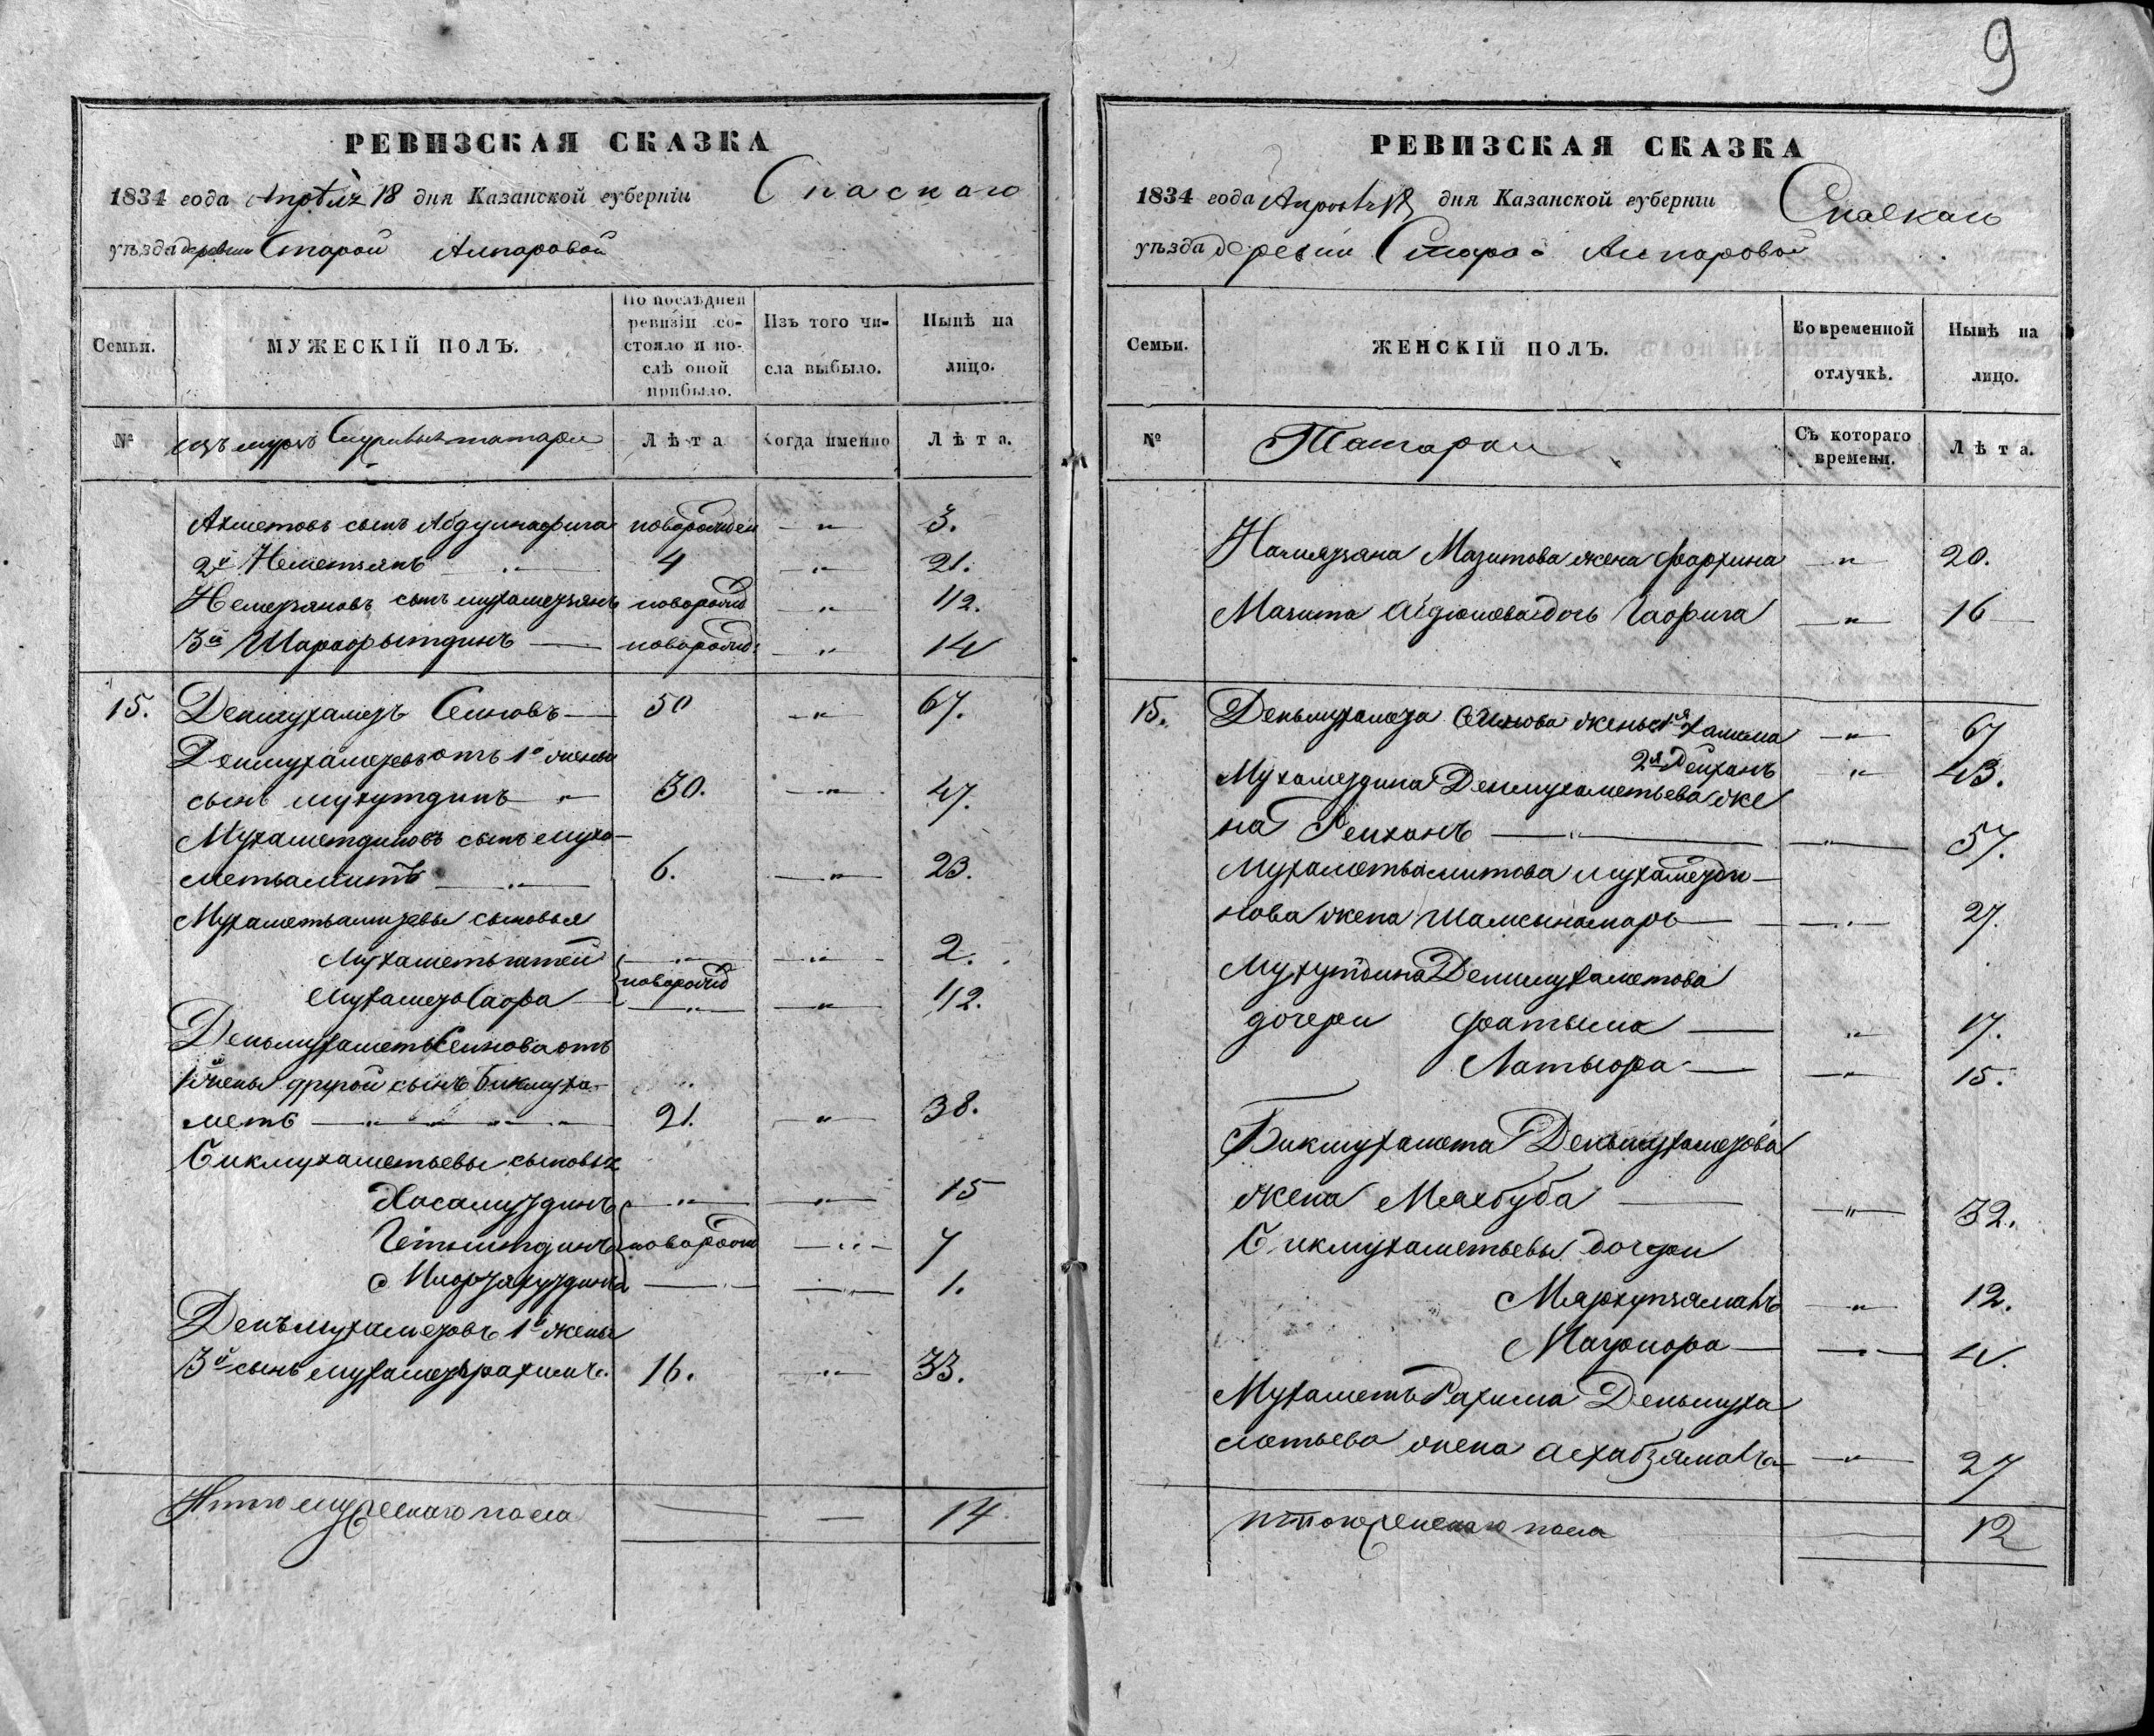 9
РЕВИЗСКАЯ СКАЗКА
1834 года Апрѣля 18 дня Казанской губерніи Спаскаго
уѣзда деревни Старой Алпаровой
Семьи.
МУЖЕСКІЙ ПОЛЪ.
По послѣдней ревизіи состояло и послѣ оной прибыло.
Изъ того числа выбыло.
Нынѣ на лицо.
№
изъ мурзъ Служивыя татары
Лѣта
Когда именно
Лѣта.
Ахметовъ сынъ новорожден 3.
2й Неметзянъ 4 21.
Немезяновъ сынъ мухамедзянъ новорожд 1/2.
3й Шарафытдинъ новорожд: 14
15. Денмухамедъ Сеиновъ 50 67.
Денмухамедевъ отъ 1й жены
сынъ мухутдинъ 30. 47.
Мухаметдиновъ сынъ муха-
метвамитъ 6. 23.
Мухаметвамидевы сыновья
Мухаметьгатей 2.
новорожд
Мухамедъ Сафа 1/2.
Деньмухаметь Сеинова отъ
1й жены другой сынъ Бикмуха-
метъ 21. 38.
Бикмухаметьевы сыновья
Хасамуздинъ 15
Гетьметдинъ новорожд 7
1.
Деньмухамедовъ 1й жены
3й сынъ мухамедьрахимъ 16. 33.
Итого мужескаго пола 14
РЕВИЗСКАЯ СКАЗКА
1834 года Апрѣля 18 дня Казанской губерніи Спаскаго
уѣзда деревни Старой Алпаровой
Семьи.
ЖЕНСКІЙ ПОЛЪ.
Во временной отлучкѣ.
Нынѣ на лицо.
№
Татарки
Съ котораго времени.
Лѣта.
Мазитова жена Фархина 20.
Мазита дочь Гафига 16
15. Деньмухамеда Сеинова жены 1я Халима 67
2я Рейханъ 43.
Мухамездина Денмухаметьева же
на Рейханъ 57.
Мухаметвамитова мухамезди-
нова жена Шамсинамаръ 27.
Мухутдина Денмухаметова
дочери Фатыма 17.
Латыфа 15.
Бикмухамета Деньмухамедова
жена Мяхбуба 32.
Бикмухаметьевы дочери
Мярхупзяманъ 12.
4.
Мухаметь Рахима Деньмуха
метьева жена Асхабзяманъ 27
итого женскаго пола 12